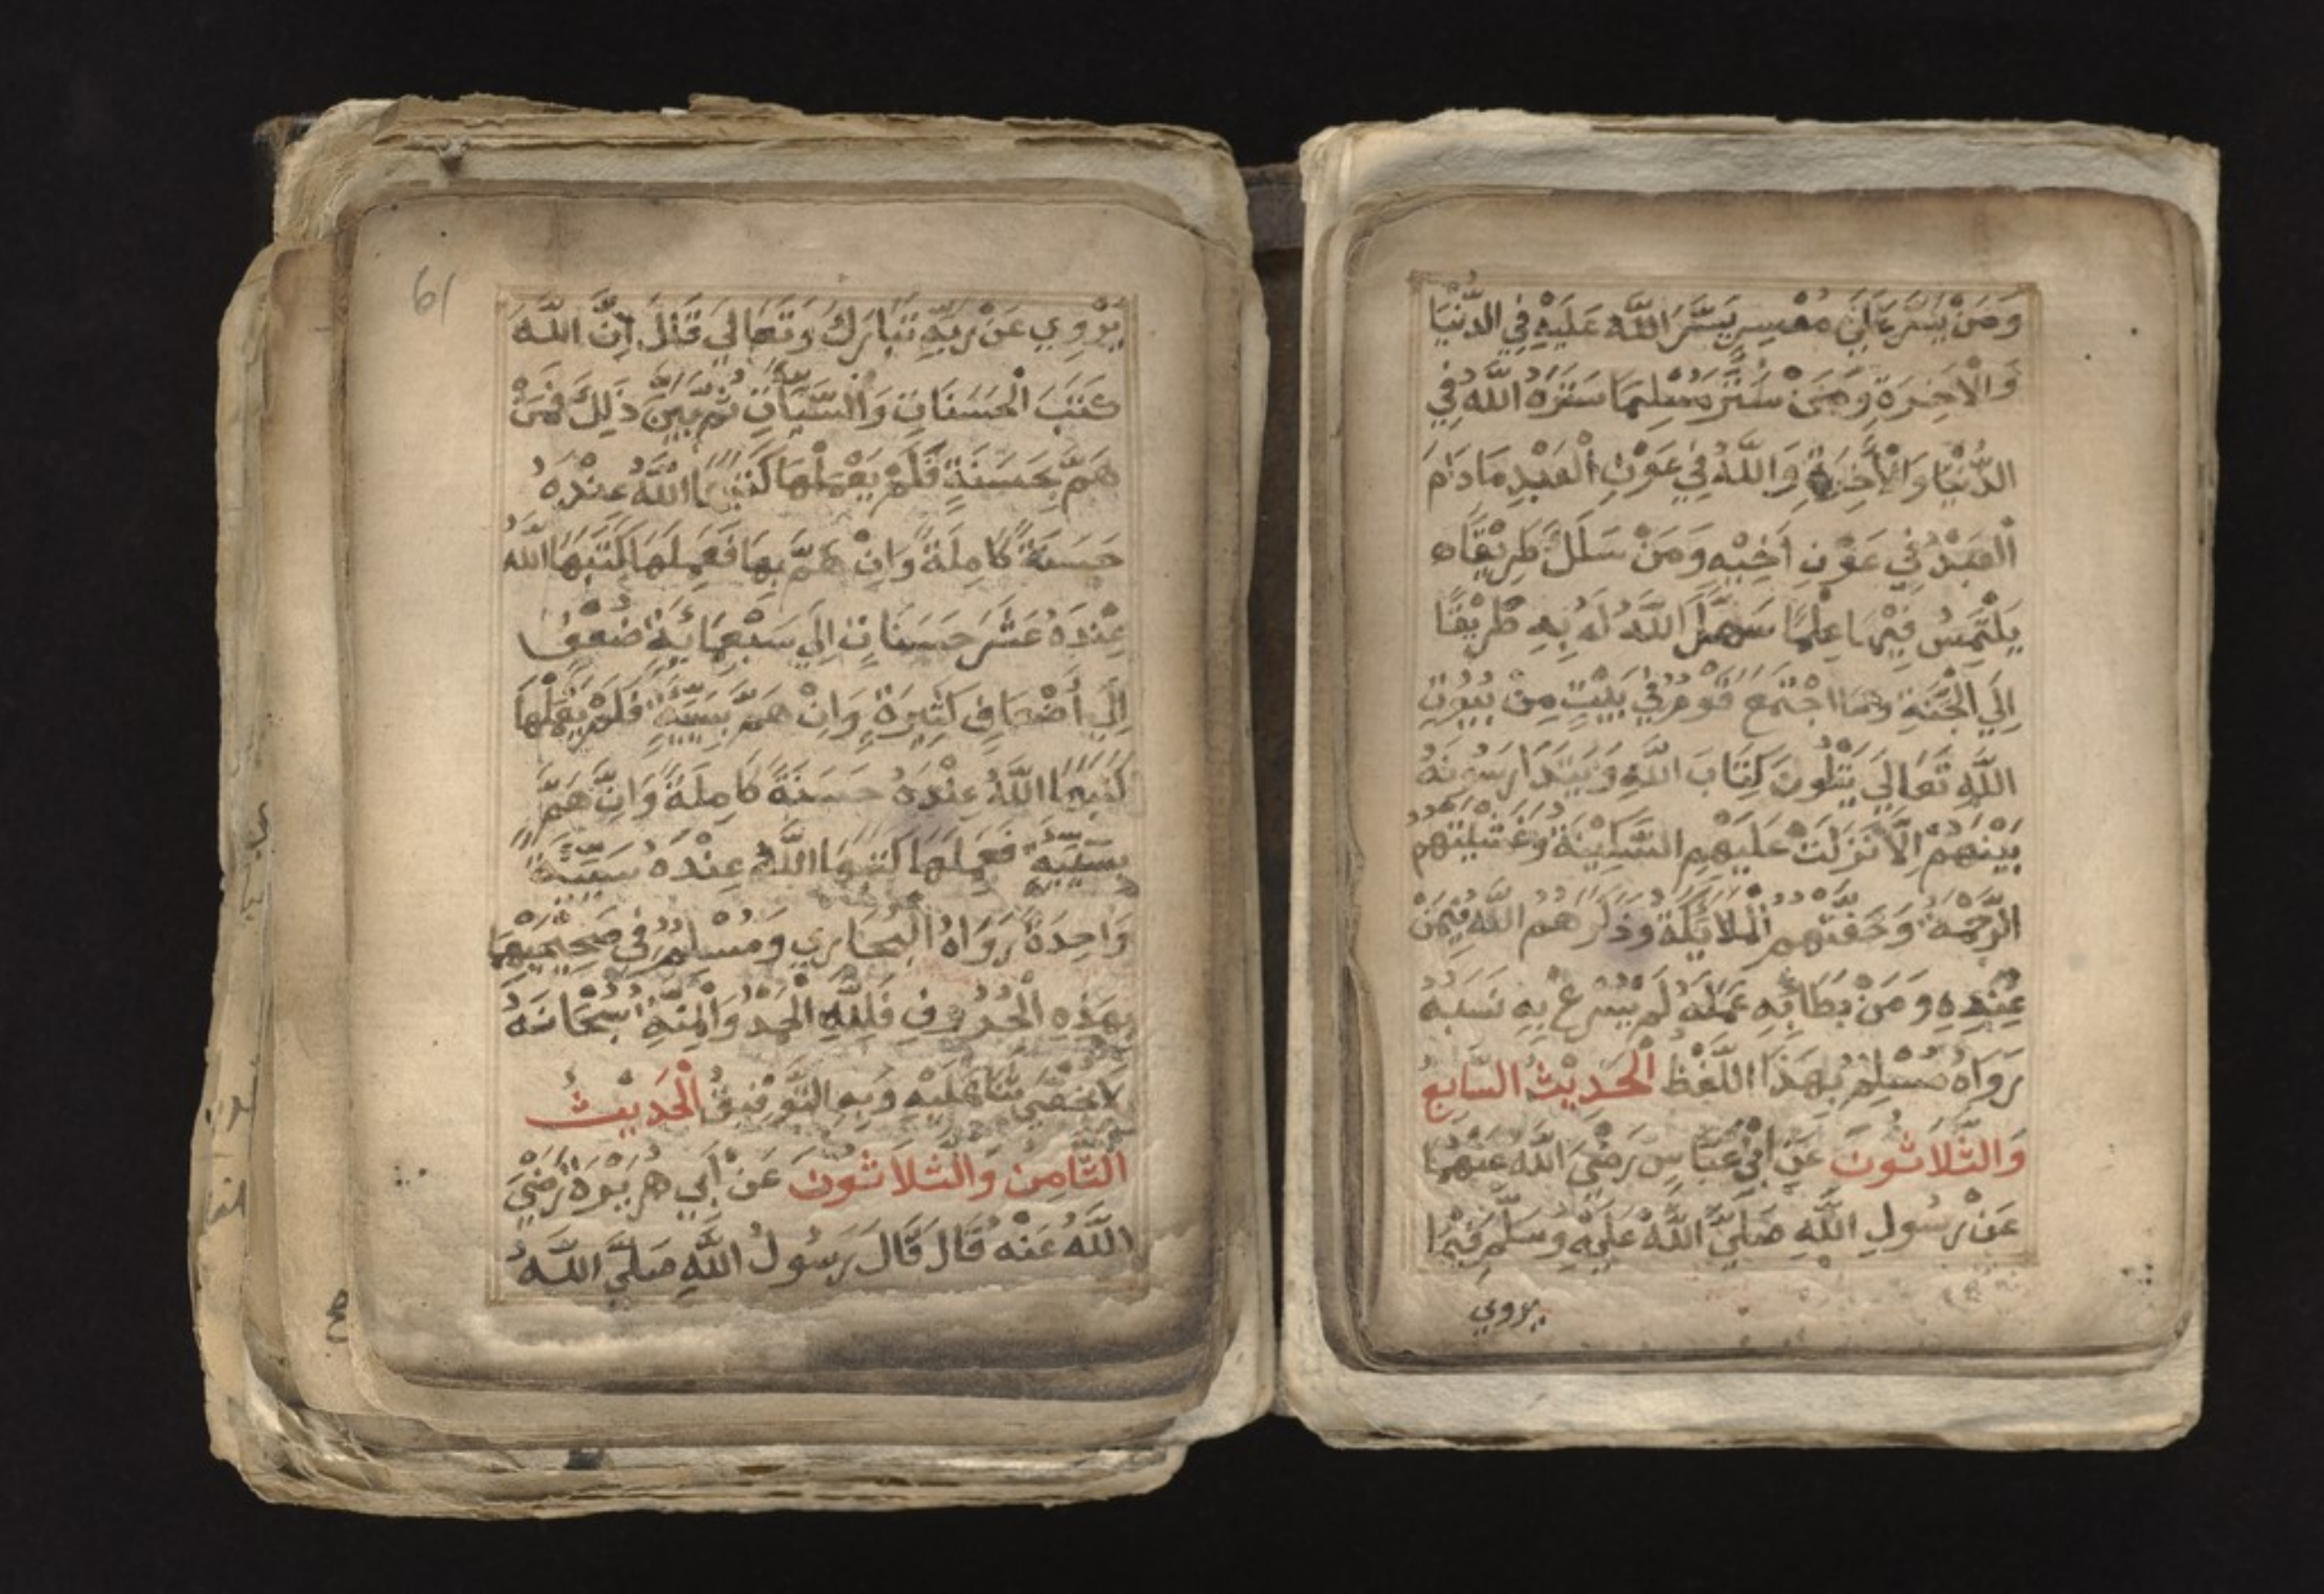 وَمَنْ يَسَّرَ عَلَىٰ مُعْسِرٍ يَسَّرَ اللَّهُ عَلَيْهِ فِي الدُّنْيَا
وَالْآخِرَةِ وَمَنْ سَتَرَ مُسْلِمًا سَتَرَهُ اللَّهُ فِي
الدُّنْيَا وَالْآخِرَةِ وَاللَّهُ فِي عَوْنِ الْعَبْدِ مَا دَامَ
الْعَبْدُ فِي عَوْنِ أَخِيْهِ وَمَنْ سَلَكَ طَرِيْقًا
يَلْتَمِسُ فِيْهَا عِلْمًا سَهَّلَ اللَّهُ لَهُ بِهِ طَرِيْقًا
اِلَي الْجَنَّةِ وَمَا اجْتَمَعَ قَوْمٌ فِي بَيْتٍ مِنْ بُيُوتِ
اللَّهِ تَعَالَي يَتْلُونَ كِتَابَ اللَّهِ وَيَتَدَارَسُونَهُ
بَيْنَهُمْ اِلَّا نَزَلَتْ عَلَيْهِمُ السَّكِيْنَةُ وَغَشِيَتْهُمُ
الرَّحْمَةُ وَحَفَّتْهُمُ الْمَلَائِكَةُ وَذَكَرَهُمُ اللَّهُ فِيْمَنْ
عِنْدِهِ وَمَنْ بَطَأ بِهِ عَمَلُهُ لَمْ يُسْرِعْ بِهِ نَسَبُهُ
رَوَاهُ مُسْلِمٌ بِهَذَا اللَّفْظِ الْحَدِيْثُ السَّابِعُ
وَالثَّلَاثُونَ عَنِ ابْنِ عَبَّاسٍ رَضْيَ اللَّهُ عَنْهُمَا
عَنْ رَسُولِ اللَّهِ صَلَّيَ اللَّهُ عَلَيْهِ وَسَلَّمَ فِيْمَا
يروي
61
يَرْوِي عَنْ رَبِّهِ تَبَارَكَ وَتَعَالَي قَالَ اِنَّ اللَّهَ
كَتَبَ الْحَسَنَاتِ وَالسَّيِّاٰتِ ثُمَّ بَيَّنَ ذَلِكَ فَمَنْ
هَمَّ بِحَسَنَةٍ فَلَمْ يَعْمَلْهَا كَتَبَهَا اللَّهُ عِنْدَهُ
حَسَنَةً كَامِلَةً وَاِنْ هَمَّ بِهَا فَعَمِلَهَا كَتَبَهَا اللَّهُ
عِنْدَهُ عَشْرَ حَسَنَاتٍ اِلَي سَبْعِمَائَةِ ضُعْفٍ
اِلَي أَضْعَافٍ كَثِيْرَةٍ وَاِنْ هَمَّ بِسَيِّئَةٍ فَلَمْ يَعْمَلْهَا
كَتَبَهَا اللَّهُ عِنْدَهُ حَسَنَةً كَامِلَةً وَاِنْ هَمَّ
بِسَيِّئَةٍ فَعَمِلَهَا كَتَبَهَا اللَّهُ عِنْدَهُ سَيِّئَةً
وَاحِدَةً رَوَاهُ الْبُخَارِي وَمُسْلِمٌ فِي صَحِيْحَيْهِمَا
بِهَذِهِ الْحُرُوفِ فَلِلَّهِ الْحَمْدُ وَالْمِنَّةُ سُبْحَانَهُ
لَا نُحْصِي ثَنَاءً عَلَيْهِ وَبِهِ التَّوْفِيْقُ الْحَدِيْثُ
الثَّامِنُ وَالثَّلَاثُونَ عَنْ أَبِي هُرَيْرَةَ رَضْيَ
اللَّهُ عَنْهُ قَالَ قَالَ رَسُولُ اللَّهِ صَلَّيَ اللَّهُ